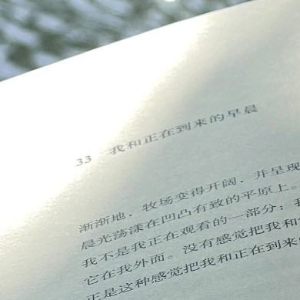 33 我和正在到来的早晨
渐渐地，牧场变得开阔，并呈现
晨光荡漾在凹凸有致的平原上。
我不是我正在观看的一部分；我
它在我外面。没有感觉把我和
正是这种感觉把我和正在到来